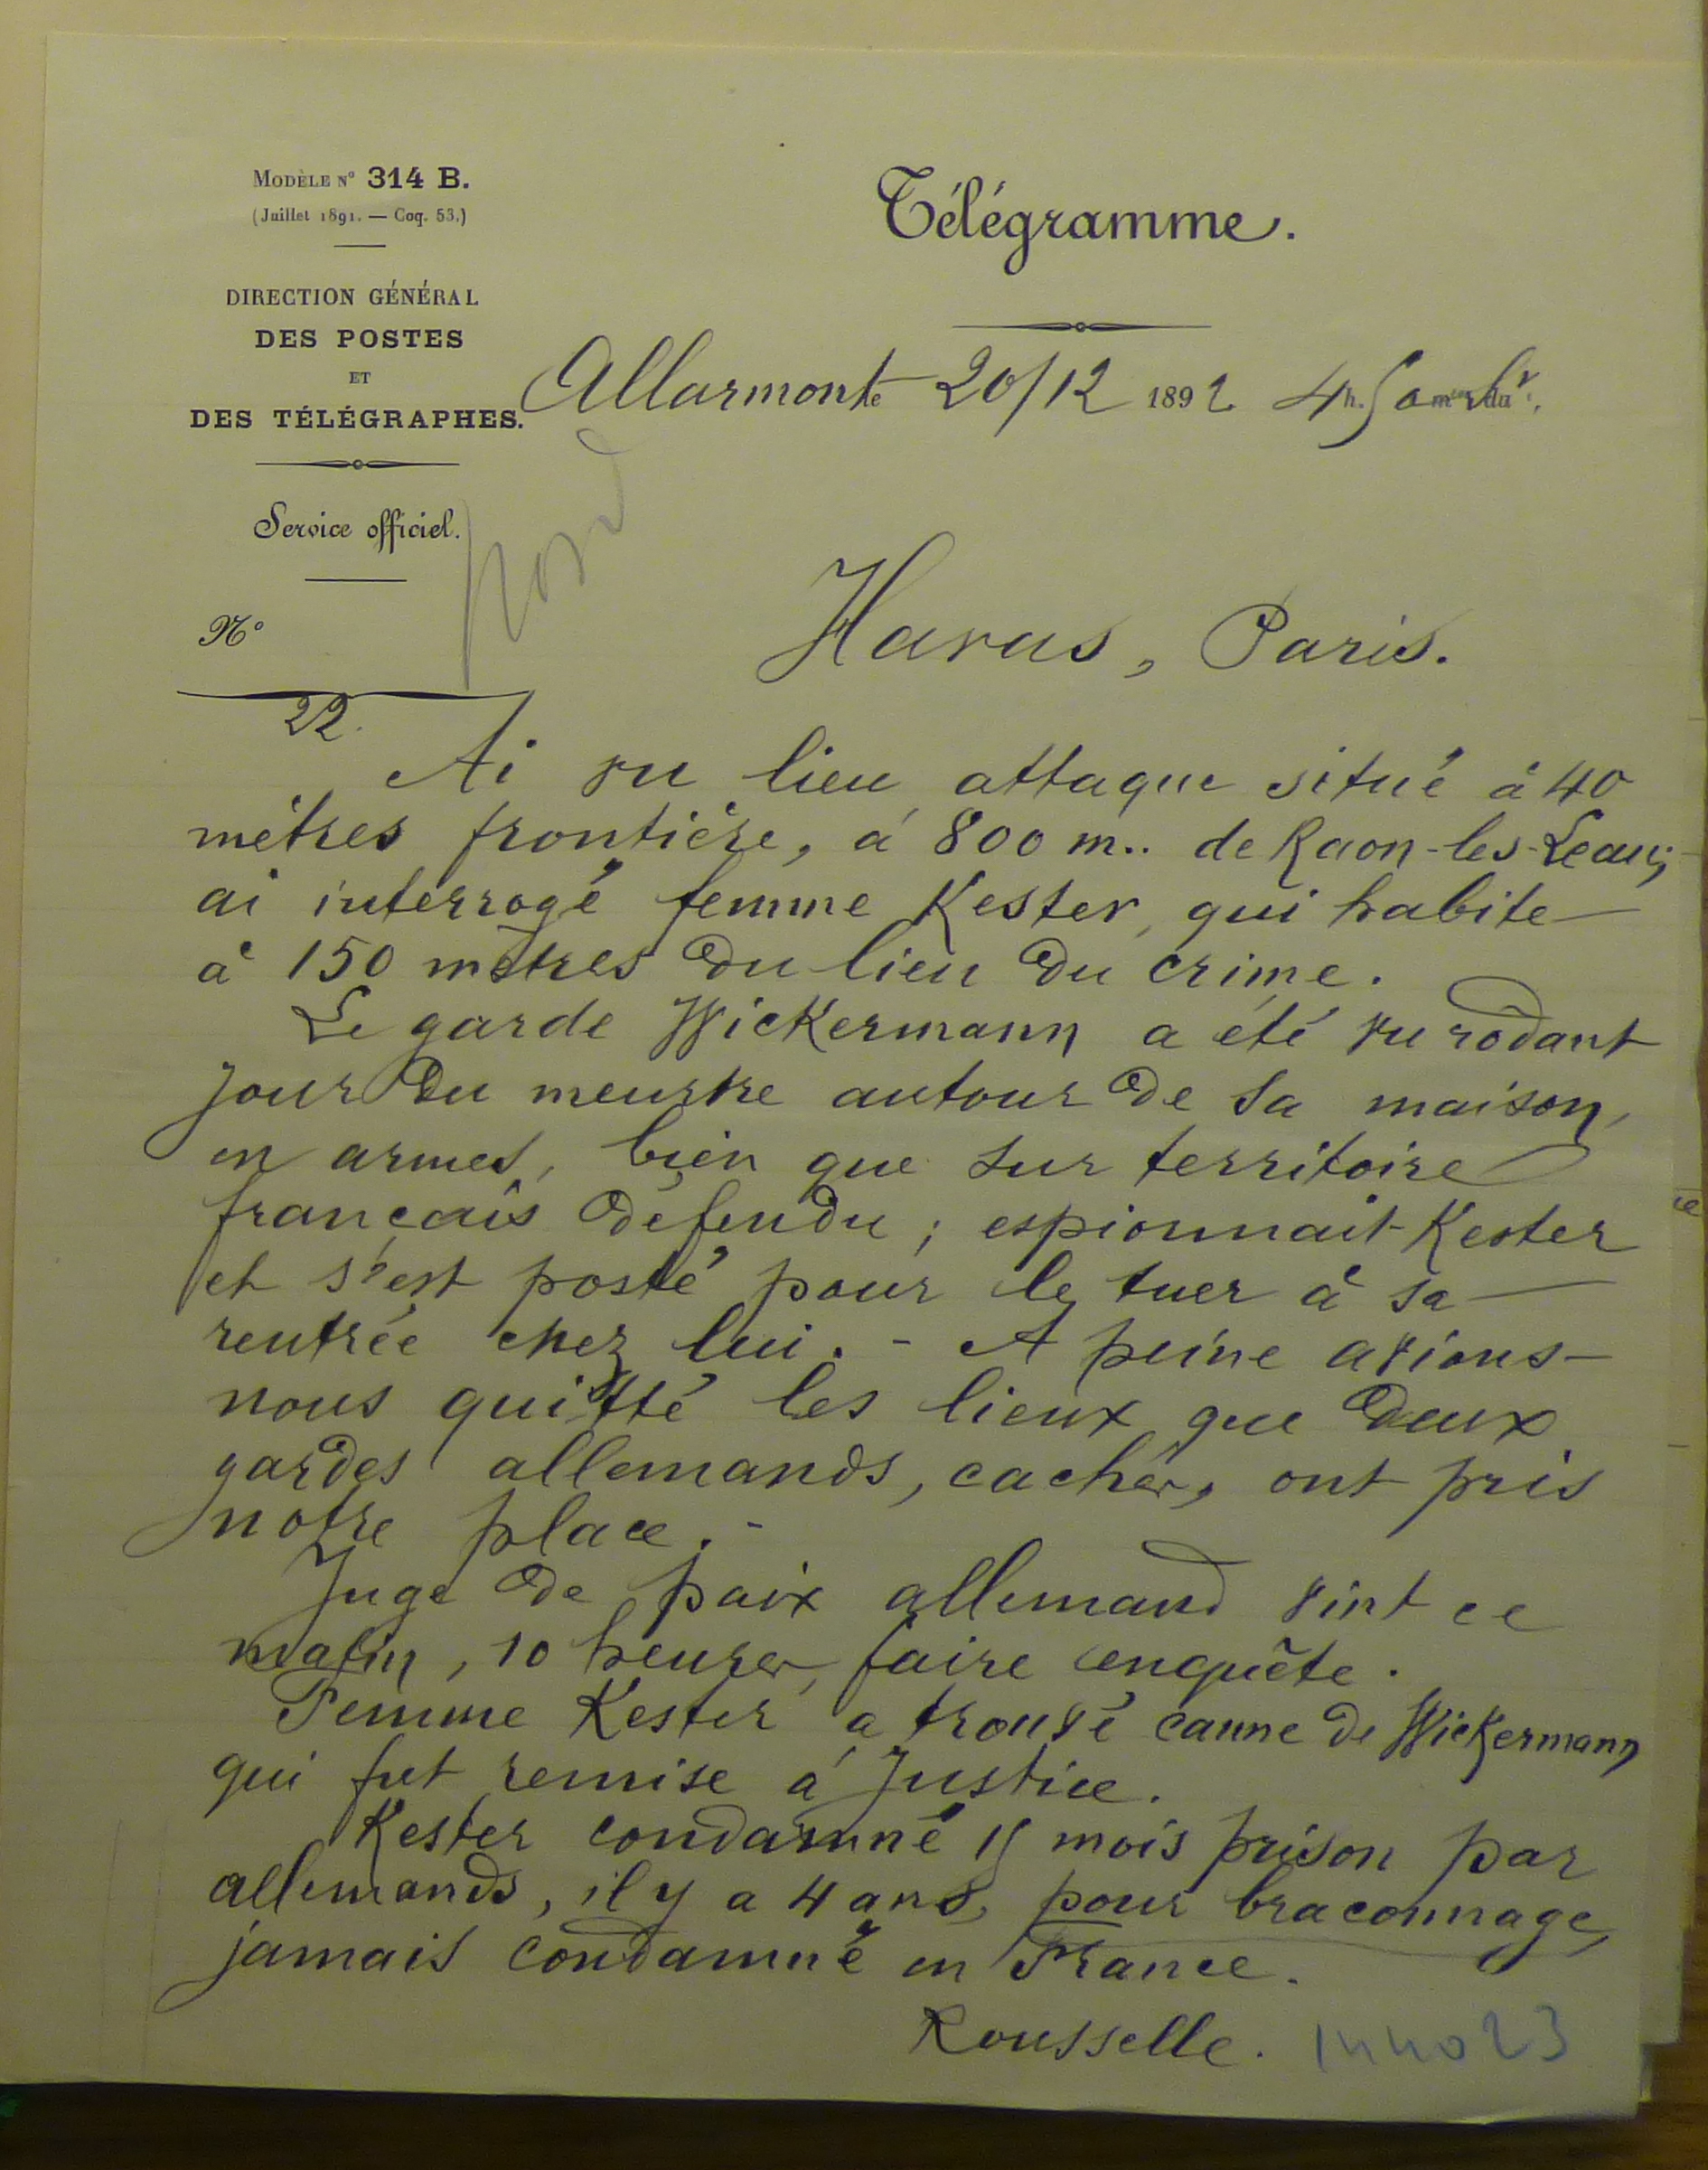 Modèle N° 314 B.
(Juillet 1891. — Coq. 53.)
DIRECTION GÉNÉRAL
DES POSTES
ET
DES TÉLÉGRAPHES.
Service officiel.
N°
22.
Télégramme.
Allarmont 20/12 1892 4h. 50 m
Havas, Paris.
Ai vu lieu attaque situé à 40
mètres frontière, à 800 m.. de Raon-les-Leau;
ai interrogé femme Kester, qui habite
à 150 mètres du lieu du crime.
Le garde Wickermann a été vu rôdant
jour du meurtre autour de sa maison,
en armes, bien que sur territoire
français défendu; espionnait Kester
et s'est posté pour le tuer à sa
rentrée chez lui. - A peine avions-
nous quitté les lieux que deux
gardes allemands, cachés, ont pris
notre place. -
Juge de paix allemand vint ce
matin, 10 heures, faire enquête.
Femme Kester a trouvé canne de Wickermann
qui fut remise à Justice.
Kester condamné 15 mois prison par
allemands, il y a 4 ans, pour braconnage,
jamais condamné en France.
Rousselle.